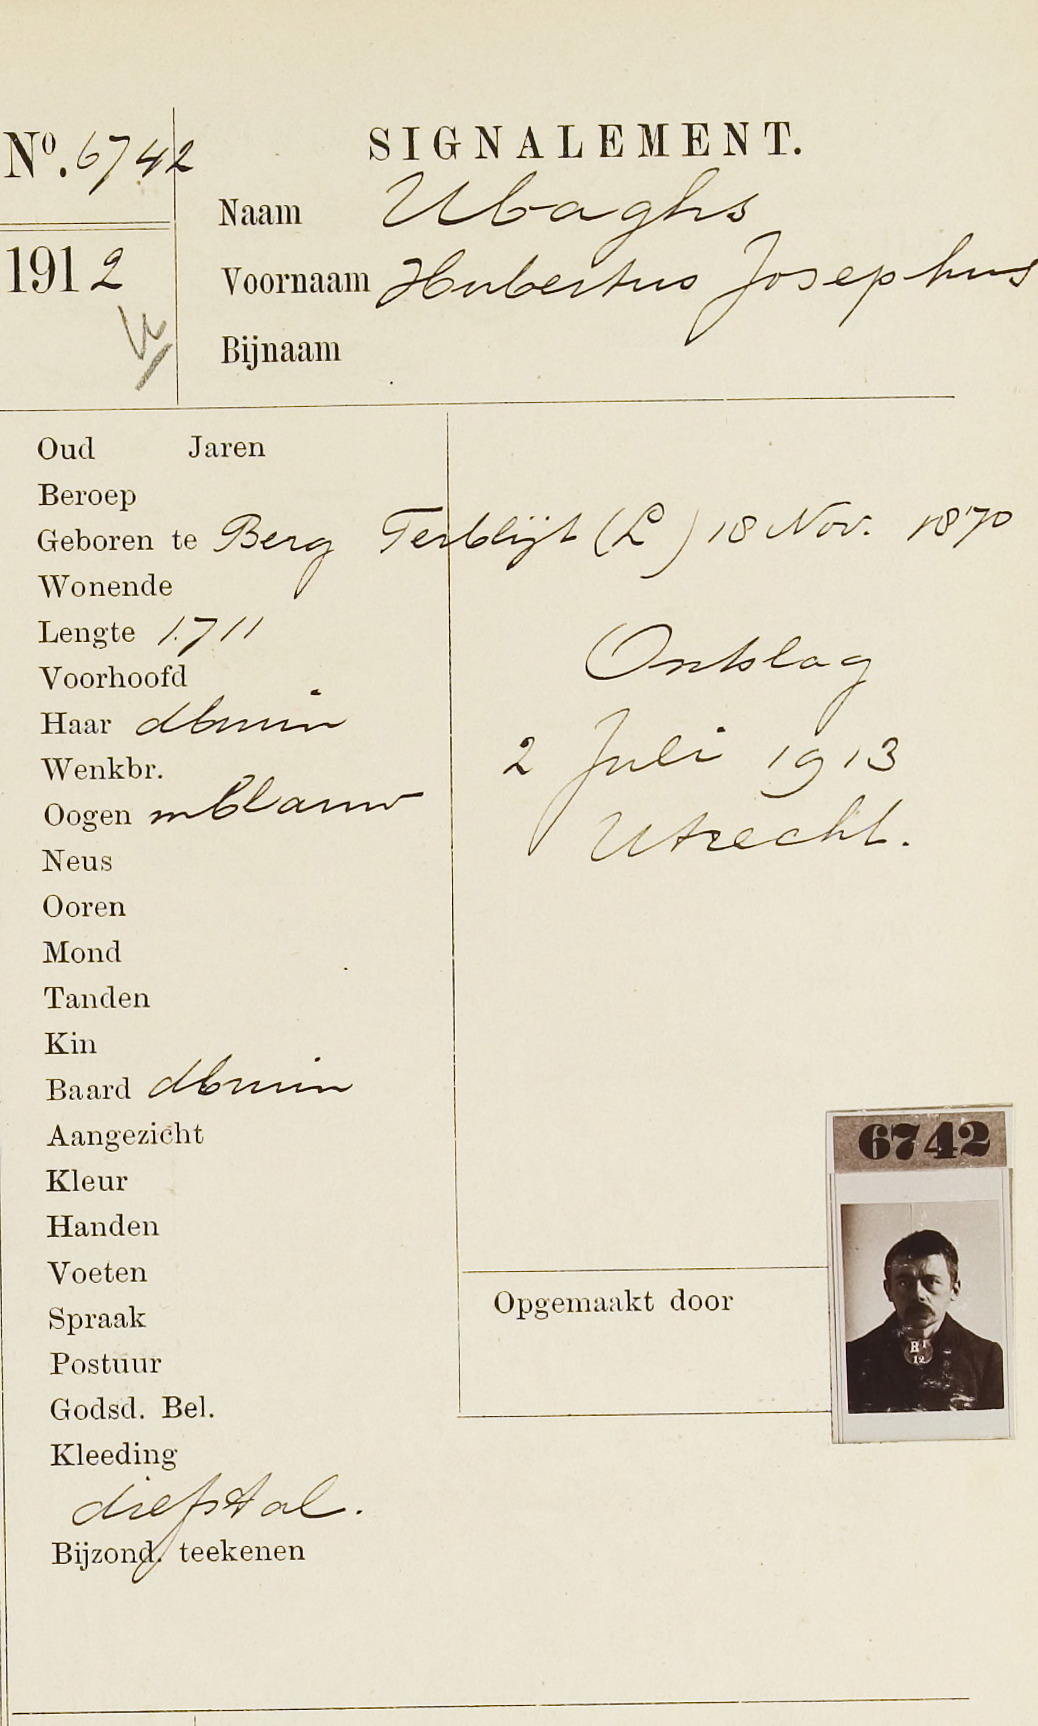 Nº. 6742
SIGNALEMENT.
Naam Ubaghs
1912
Voornaam Hubertus Josephus
Bijnaam
Oud Jaren
Beroep
Geboren te Berg Terblijt (L) 18 Nov. 1870
Wonende
Lengte 1.711
Voorhoofd
Haar dbruin
Wenkbr.
Oogen mblauw
Neus
Ooren
Mond
Tanden
Kin
Baard dbruin
Aangezicht
Kleur
Handen
Voeten
Spraak
Postuur
Godsd. Bel.
Kleeding
diefstal.
Bijzond. teekenen
Ontslag
2 Juli 1913
Utrecht.
Opgemaakt door
6742
12